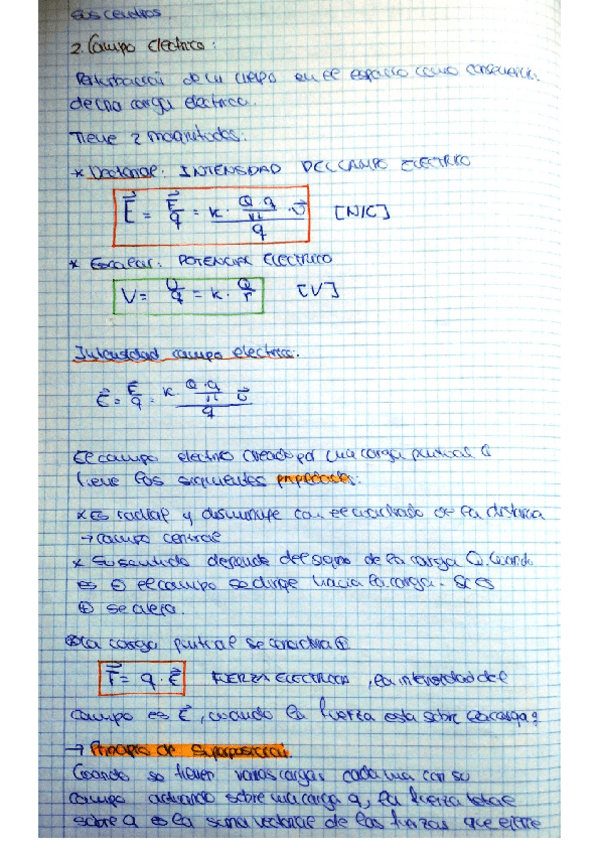 sus centros.
2. Campo Electrico:
Perturbacion de un cuerpo en el espacio como consecuencia
de una carga electrica.
Tiene 2 magnitudes:
* Vectorial: INTENSIDAD DEL CAMPO ELECTRICO
E⃗ = F⃗/q = K · (Q·q/r²) · u⃗ / q [N/C]
* Escalar: POTENCIAL ELECTRICO
V = U/q = K · Q/r [V]
Intensidad campo electrico.
E⃗ = F⃗/q = K · (Q·q/r²) u⃗ / q
El campo electrico creado por una carga puntual Q
tiene las siguientes propiedades:
* Es radial y disminuye con el cuadrado de la distancia
→ campo central
* Su sentido depende del signo de la carga Q. Cuando
es ⊖ el campo se dirige hacia la carga. Si es
⊕ se aleja.
la carga puntual se considera ⊕
F⃗ = q · E⃗ FUERZA ELECTRICA, la intensidad del
campo es E⃗, cuando la fuerza esta sobre carga q
→ Principio de Superposicion.
Cuando se tienen varias cargas cada una con su
campo actuando sobre una carga q, la fuerza total
sobre q es la suma vectorial de las fuerzas que ejerce